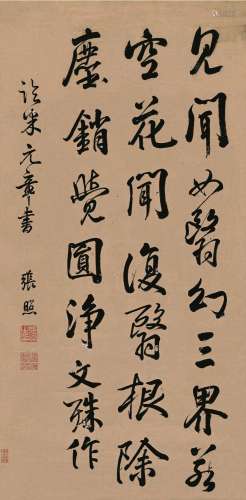 見聞如翳幻三界若
空花聞復翳根除
塵銷覺圓淨文殊作
臨米元章書
張照